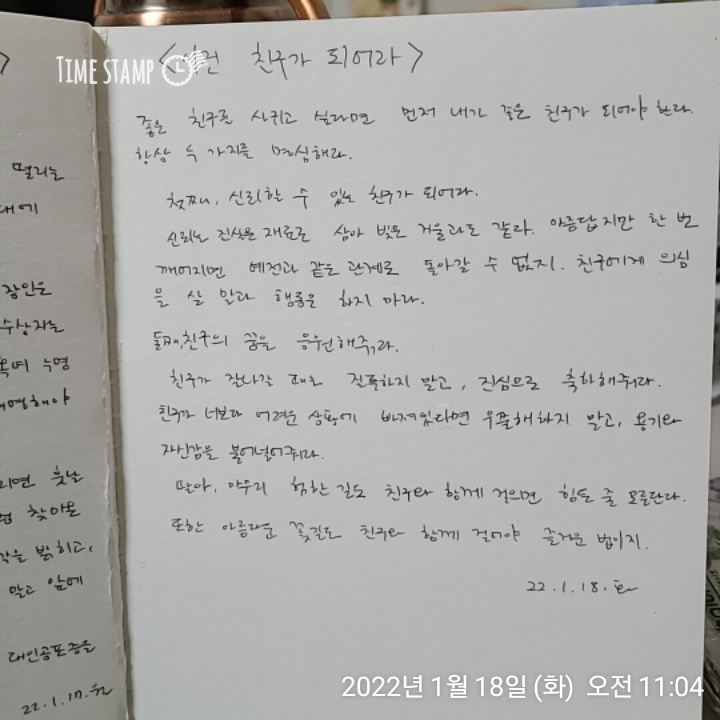 TIME STAMP
친구가 되어라>
좋은 친구를 사귀고 싶다면 먼저 내가 좋은 친구가 되어야 한다.
항상 두 가지를 명심해라.
첫째, 신뢰할 수 있는 친구가 되어라.
신뢰는 진실을 재료로 삼아 빚은 거울과도 같다. 아름답지만 한 번
깨어지면 예전과 같은 관계로 돌아갈 수 없지. 친구에게 의심
을 살 말과 행동은 하지 마라.
둘째, 친구의 꿈을 응원해주거라.
친구가 잘나갈 때는 질투하지 말고, 진심으로 축하해줘라.
친구가 너보다 어려운 상황에 빠져있다면 우쭐해하지 말고, 용기와
자신감을 불어넣어줘라.
딸아, 아무리 험한 길도 친구와 함께 걸으면 힘든 줄 모른단다.
또한 아름다운 꽃길도 친구와 함께 걸어야 즐거운 법이지.
22.1.18.화
떨리는
대에
장인은
수상자는
해야
리면 훗날
찾아온
밝히고,
말고 앞에
대인공포증을
22.1.17.월
2022년 1월 18일 (화) 오전 11:04